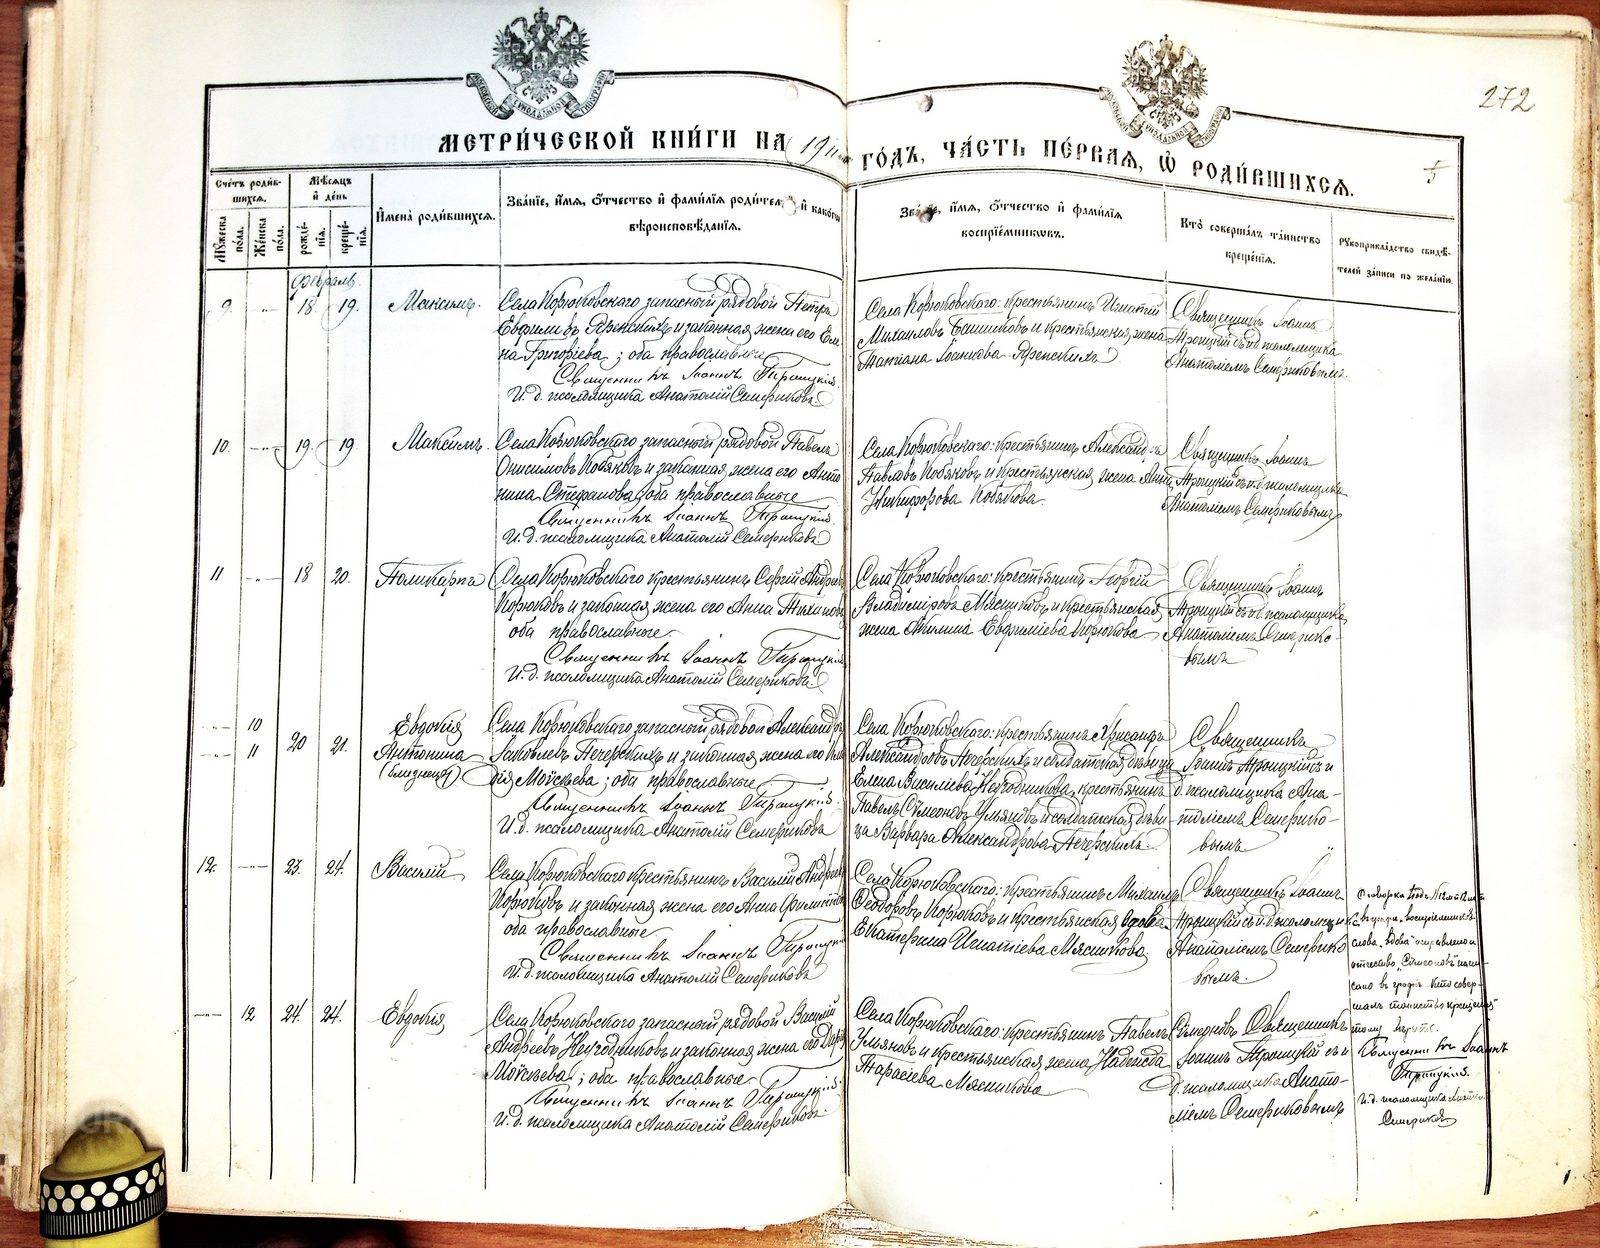 272
МЕТРИ́ЧЕСКОЙ КНИ́ГИ НА 1911 ГО́ДЪ, ЧА́СТЬ ПЕ́РВАЯ, Ѡ РОДИ́ВШИХСЯ.
5
Сче́тъ роди́в-
шихся.
Мꙋжеска по́ла.
Же́нска по́ла.
Мѣ́сяцъ
и де́нь
рожде́-
нія.
креще́-
нія.
Имена̀ роди́вшихся.
Зва́ніе, и́мя, ѻ́тчество и фами́лія роди́телей, и како́гѡ
вѣроисповѣ́данія.
Зва́ніе, и́мя, ѻ́тчество и фами́лія
воспріе́мникѡвъ.
Кто̀ соверша́лъ та́инство
креще́нія.
Рꙋкоприкла́дство свидѣ́-
телей за́писи по жела́нію.
Февраль.
9. „ 18 19. Максимъ.
Села Корюковскаго запасный рядовой Петръ
Евфимовъ Яренскихъ и законная жена его Еле
на Григоріева; оба православные
Священникъ Іоаннъ Троицкій.
И. д. псаломщика Анатолій Семериковъ.
Села Корюковскаго: крестьянинъ Игнатій
Михаиловъ Банниковъ и крестьянская жена
Татіана Іоаннова Яренскихъ
Священникъ Іоаннъ
Троицкій съ и. д. псаломщика
Анатоліемъ Семериковымъ.
10. „ 19. 19 Максимъ.
Села Корюковскаго запасный рядовой Павелъ
Онисимовъ Кобяковъ и законная жена его Анто
нина Стефанова; оба православные
Священникъ Іоаннъ Троицкій.
И. д. псаломщика Анатолій Семериковъ
Села Корюковскаго: крестьянинъ Александръ
Павловъ Кобяковъ и крестьянская жена Анна
Никифорова Кобякова.
Священникъ Іоаннъ
Троицкій съ и. д. псаломщика
Анатоліемъ Семериковымъ
11 „ 18 20. Поликарпъ
Села Корюковскаго крестьянинъ Сергій Андреевъ
Корюковъ и законная жена его Анна Тихонова
оба православные.
Священникъ Іоаннъ Троицкій
И. д. псаломщика Анатолій Семериковъ.
Села Корюковскаго: крестьянинъ Георгій
Владиміровъ Мясниковъ и крестьянская
жена Акилина Евфиміева Корюкова
Священникъ Іоаннъ
Троицкій съ и. д. псаломщика
Анатоліемъ Семерико-
вымъ
„ 10
„ 11
20 21.
Евдокія
Антонина
(близнецы)
Села Корюковскаго запасный рядовой Александръ
Іаковлевъ Печерскихъ и законная жена его Клав
дія Моѵсеева; оба православные.
Священникъ Іоаннъ Троицкій.
И. д. псаломщика Анатолій Семериковъ
Села Корюковскаго: крестьянинъ Хрисанфъ
Александровъ Печерскихъ и солдатская дѣвица
Елена Василіева Неугодникова, крестьянинъ
Павелъ Сѵмеоновъ Ульяновъ и солдатская дѣви
ца Варвара Александрова Печерскихъ
Священникъ
Іоаннъ Троицкій съ и
д. псаломщика Ана-
толіемъ Семерико-
вымъ
12. „ 23. 24. Василій
Села Корюковскаго крестьянинъ Василій Андреевъ
Корюковъ и законная жена его Анна Филиппова
оба православные
Священникъ Іоаннъ Троицкій
И. д. псаломщика Анатолій Семериковъ
Села Корюковскаго: крестьянинъ Михаилъ
Ѳеодоровъ Корюковъ и крестьянская вдова
Екатерина Игнатіева Мясникова
Священникъ Іоаннъ
Троицкій съ и. д. псаломщика
Анатоліемъ Семерико
вымъ.
въ графѣ „воспріемниковъ
слово „вдова“ исправлено и
отчество „Сѵмеоновъ“ напи-
сано въ графѣ „Кто совер-
шалъ таинство крещенія“
тому вѣрить.
Священникъ Іоаннъ
Троицкій.
И. д. псаломщика Анатолій
Семериковъ
„ 12 24. 24. Евдокія
Села Корюковскаго запасный рядовой Василій
Андреевъ Неугодниковъ и законная жена его Дарія
Моѵсеева; оба православные
Священникъ Іоаннъ Троицкій.
И. д. псаломщика Анатолій Семериковъ.
Села Корюковскаго: крестьянинъ Павелъ Сѵмеоновъ
Ульяновъ и крестьянская жена Надежда
Тарасіева Мясникова
Священникъ
Іоаннъ Троицкій съ и
д. псаломщика Анато-
ліемъ Семериковымъ